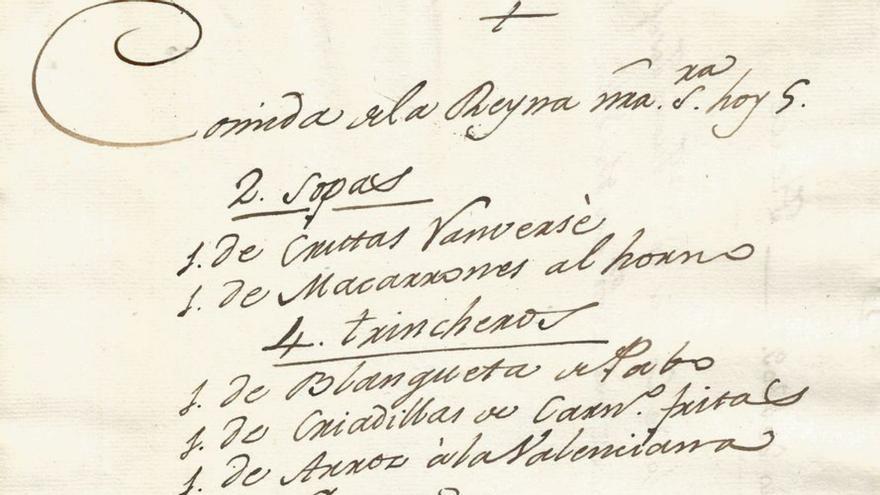 †
Comida de la Reyna nra. sra. hoy 5.
2. Sopas
1. de Crutas Vanversè
1. de Macarrones al horno
4. trincheros
1. de Blangueta de Pabo
1. de Criadillas de Carno. fritas
1. de Arroz à la Valenciana